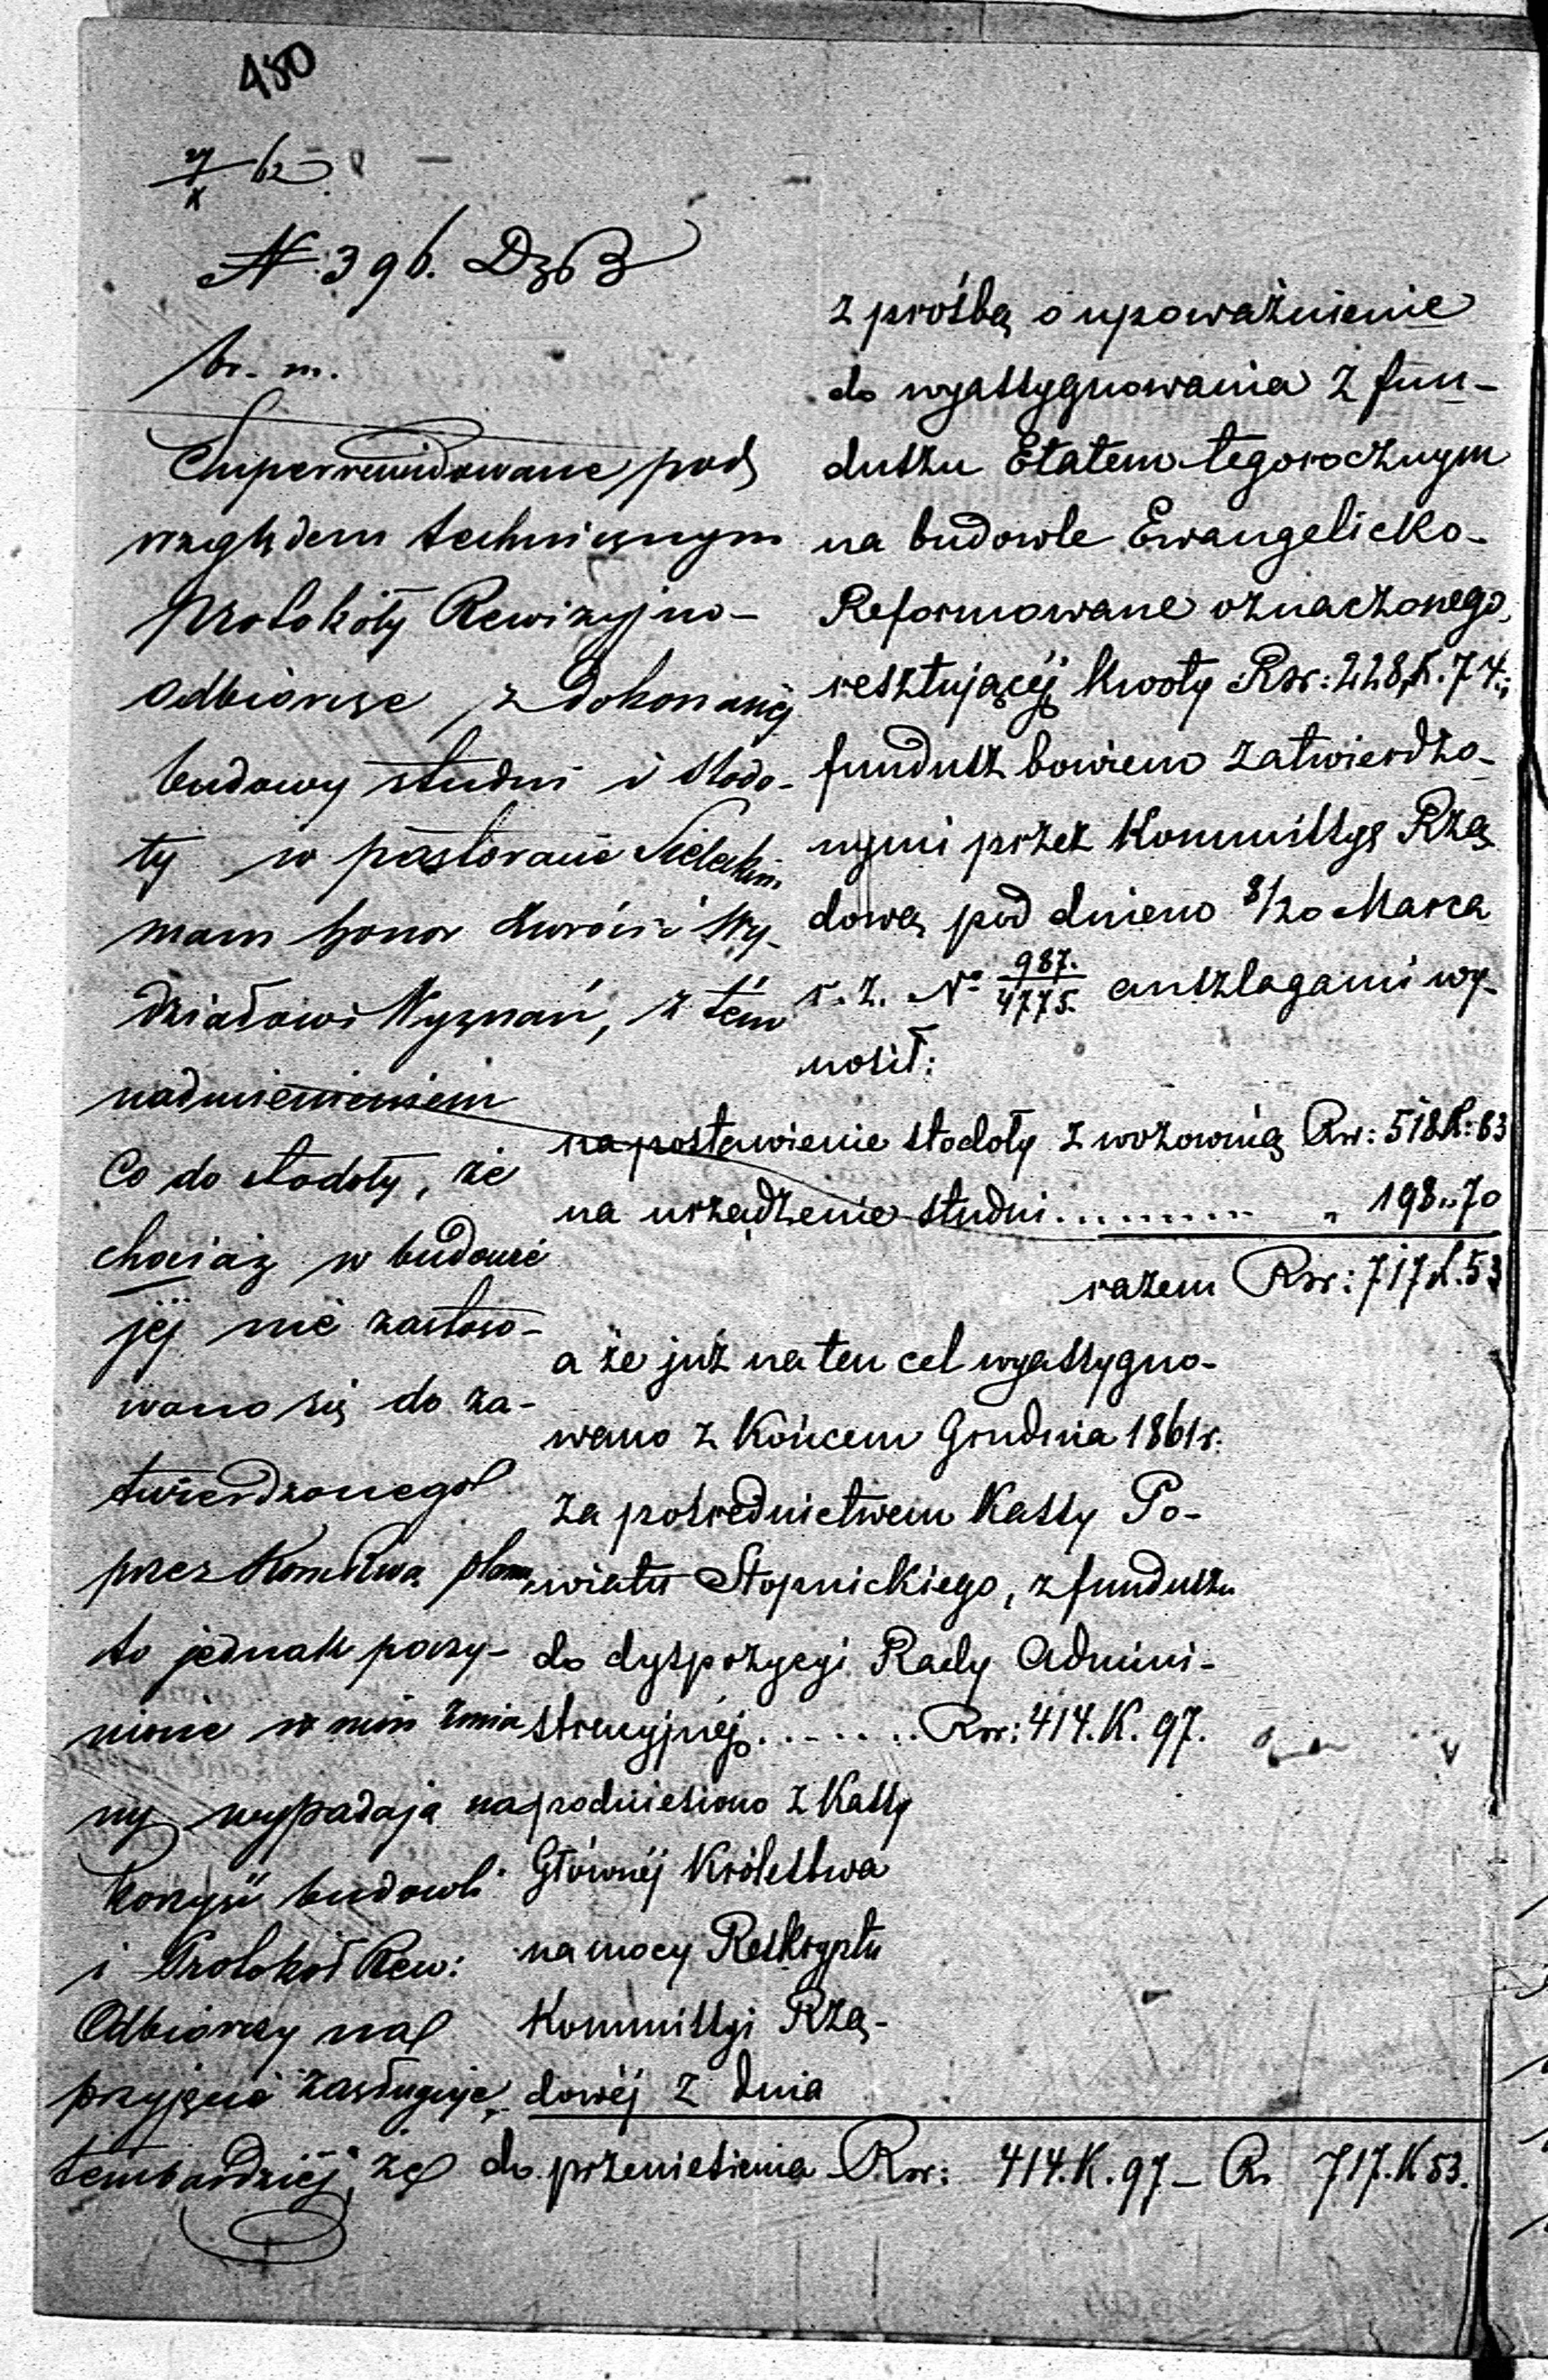 480
29/X 62
N. 396. DzB
br. m.
Superrewidowane pod
względem technicznym
Protokóły Rewizyjno-
odbiorcze z dokonanéj
budowy studni i stodo-
ły w pastoracie Sieleckim
mam honor zwrócić Wy-
działowi Wyznań, z tém
nadmienieniem
Co do stodoły, że
chociaż w budowie
jéj nie zastoso-
wano się do za-
twierdzonego
przez Kom: planu
to jednak poczy-
nione w nim zmia
ny wypadają na
korzyść budowli
i Protokół Rew:
Odbiorczy na
przyjęcie zasługuje,
tembardziéj, że
z prośbą o upoważnienie
do wyassygnowania z fun-
duszu Etatem tegorocznym
na budowle Ewangelicko-
Reformowane oznaczonego,
resztującéj kwoty Rsr: 228, K. 74.;
fundusz bowiem zatwierdzo-
nymi przez Kommissyę Rzą
dową pod dniem 8/20 Marca
r. z. No 987./4775. anszlagami wy-
nosił:
na postawienie stodoły z wozownią Rsr: 518 K: 83
na urządzenie studni .......... „ 198 „ 70
razem Rsr: 717 K. 53
a że już na ten cel wyassygno-
wano z Końcem Grudnia 1861 r.
za pośrednictwem Kassy Po-
wiatu Stopnickiego, z funduszu
do dyspozycyi Rady Admini-
stracyjnéj ....... Rsr: 414. K. 97.
podniesiono z Kassy
Głównéj Królestwa
na mocy Reskryptu
Kommissyi Rzą-
dowéj z dnia
do przeniesienia Rsr: 414. K. 97 – R. 717. K 53.